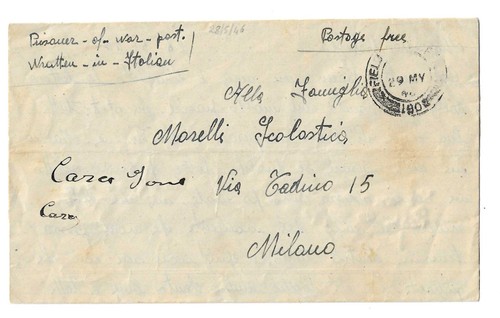 Prisoner - of - war - post.
Wrutten - in - Italian
28/5/46
Postage free
FIEL
29 MY
Alla Famiglia
Morelli Scolastica
Via Tadino 15
Milano
Cara
Cara